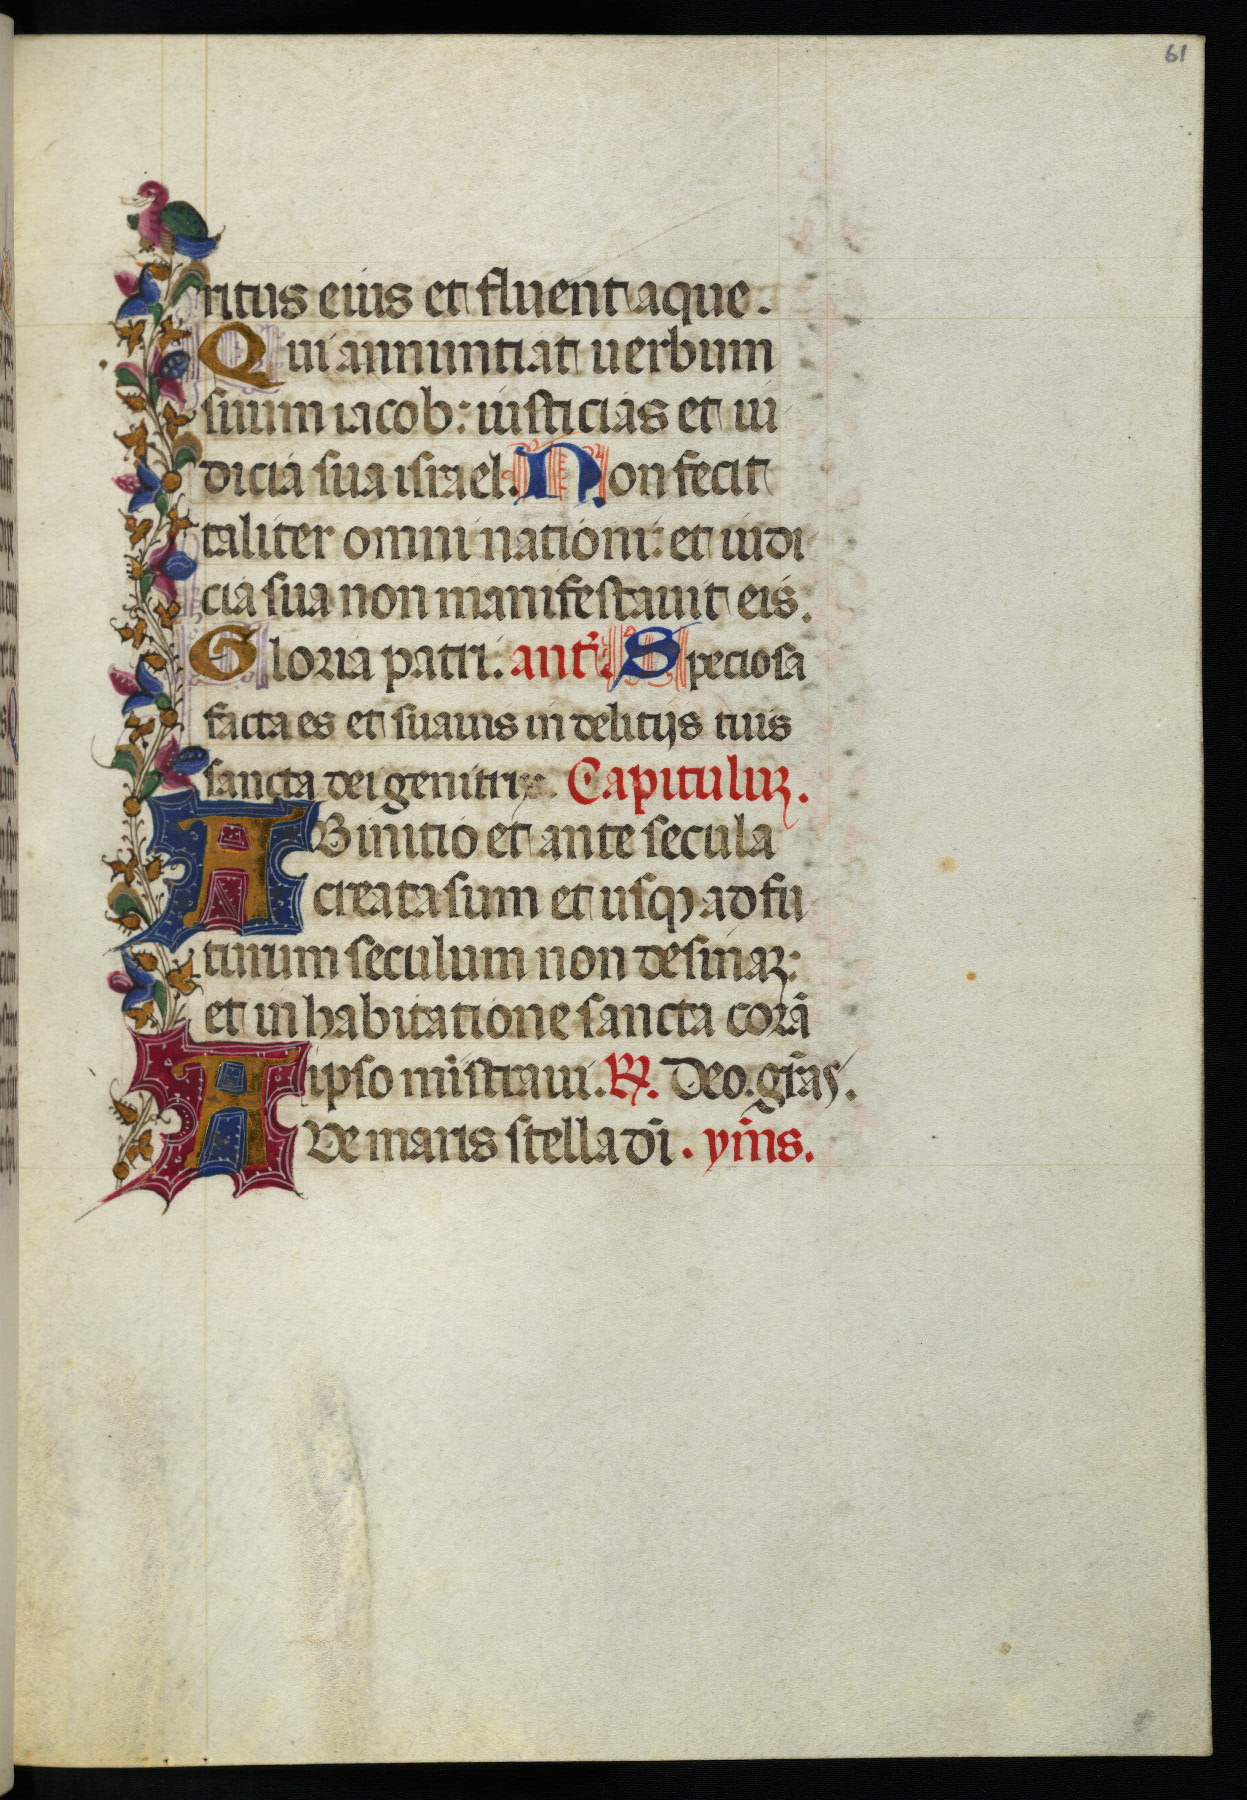 61
ritus eius et fluent aque.
Qui annuntiat uerbum
suum iacob: iusticias et iu
dicia sua israel. Non fecit
taliter omni nationi: et iudi
cia sua non manifestauit eis.
Gloria patri. ant̃. Speciosa
facta es et suauis in delitijs tuis
sancta dei genitrix. Capituluꝫ.
AB initio et ante secula
creata sum et usqꝫ ad fu
turum seculum non desinaꝫ:
et in habitatione sancta corã
ipso mi̅straui. ℟. Deo. gr̃as.
AVe maris stella dı̅. ym̅s.